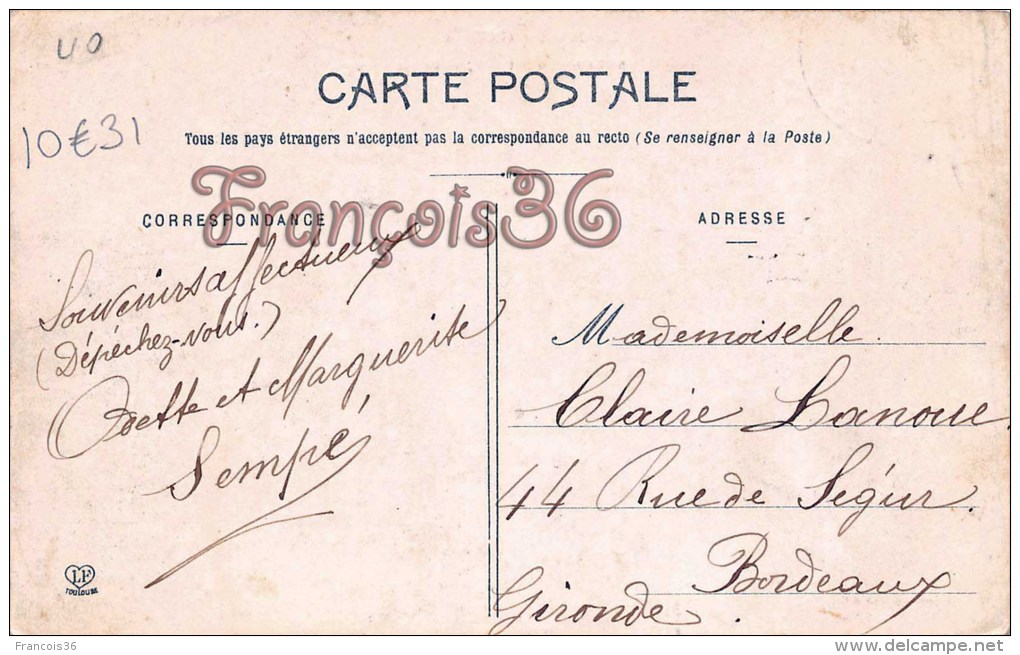 40
10€31
CARTE POSTALE
Tous les pays étrangers n'acceptent pas la correspondance au recto (Se renseigner à la Poste)
François36
CORRESPONDANCE
Souvenirs affectueux
(Dépêchez-vous.)
Odette et Marguerite
Sempé
ADRESSE
Mademoiselle
Claire Lanoue
44 Rue de Ségur.
Bordeaux
Gironde.
LF
TOULOUSE
Francois36
www.delcampe.net